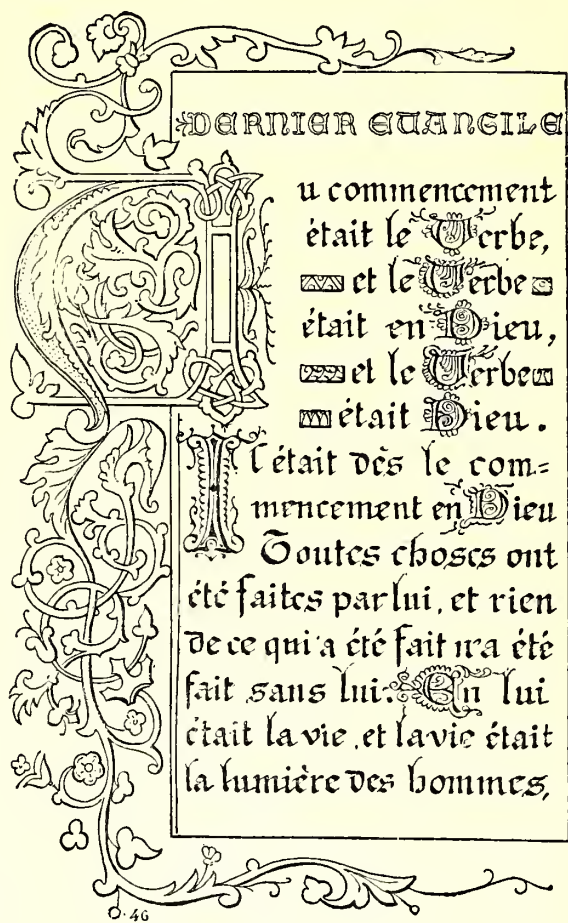 DERNIER EVANGILE
Au commencement
était le Verbe,
et le Verbe
était en Dieu,
et le Verbe
était Dieu.
Il était dès le com=
mencement en Dieu
Toutes choses ont
été faites par lui, et rien
de ce qui a été fait n'a été
fait sans lui. En lui
était la vie, et la vie était
la lumière des hommes,
O. 46